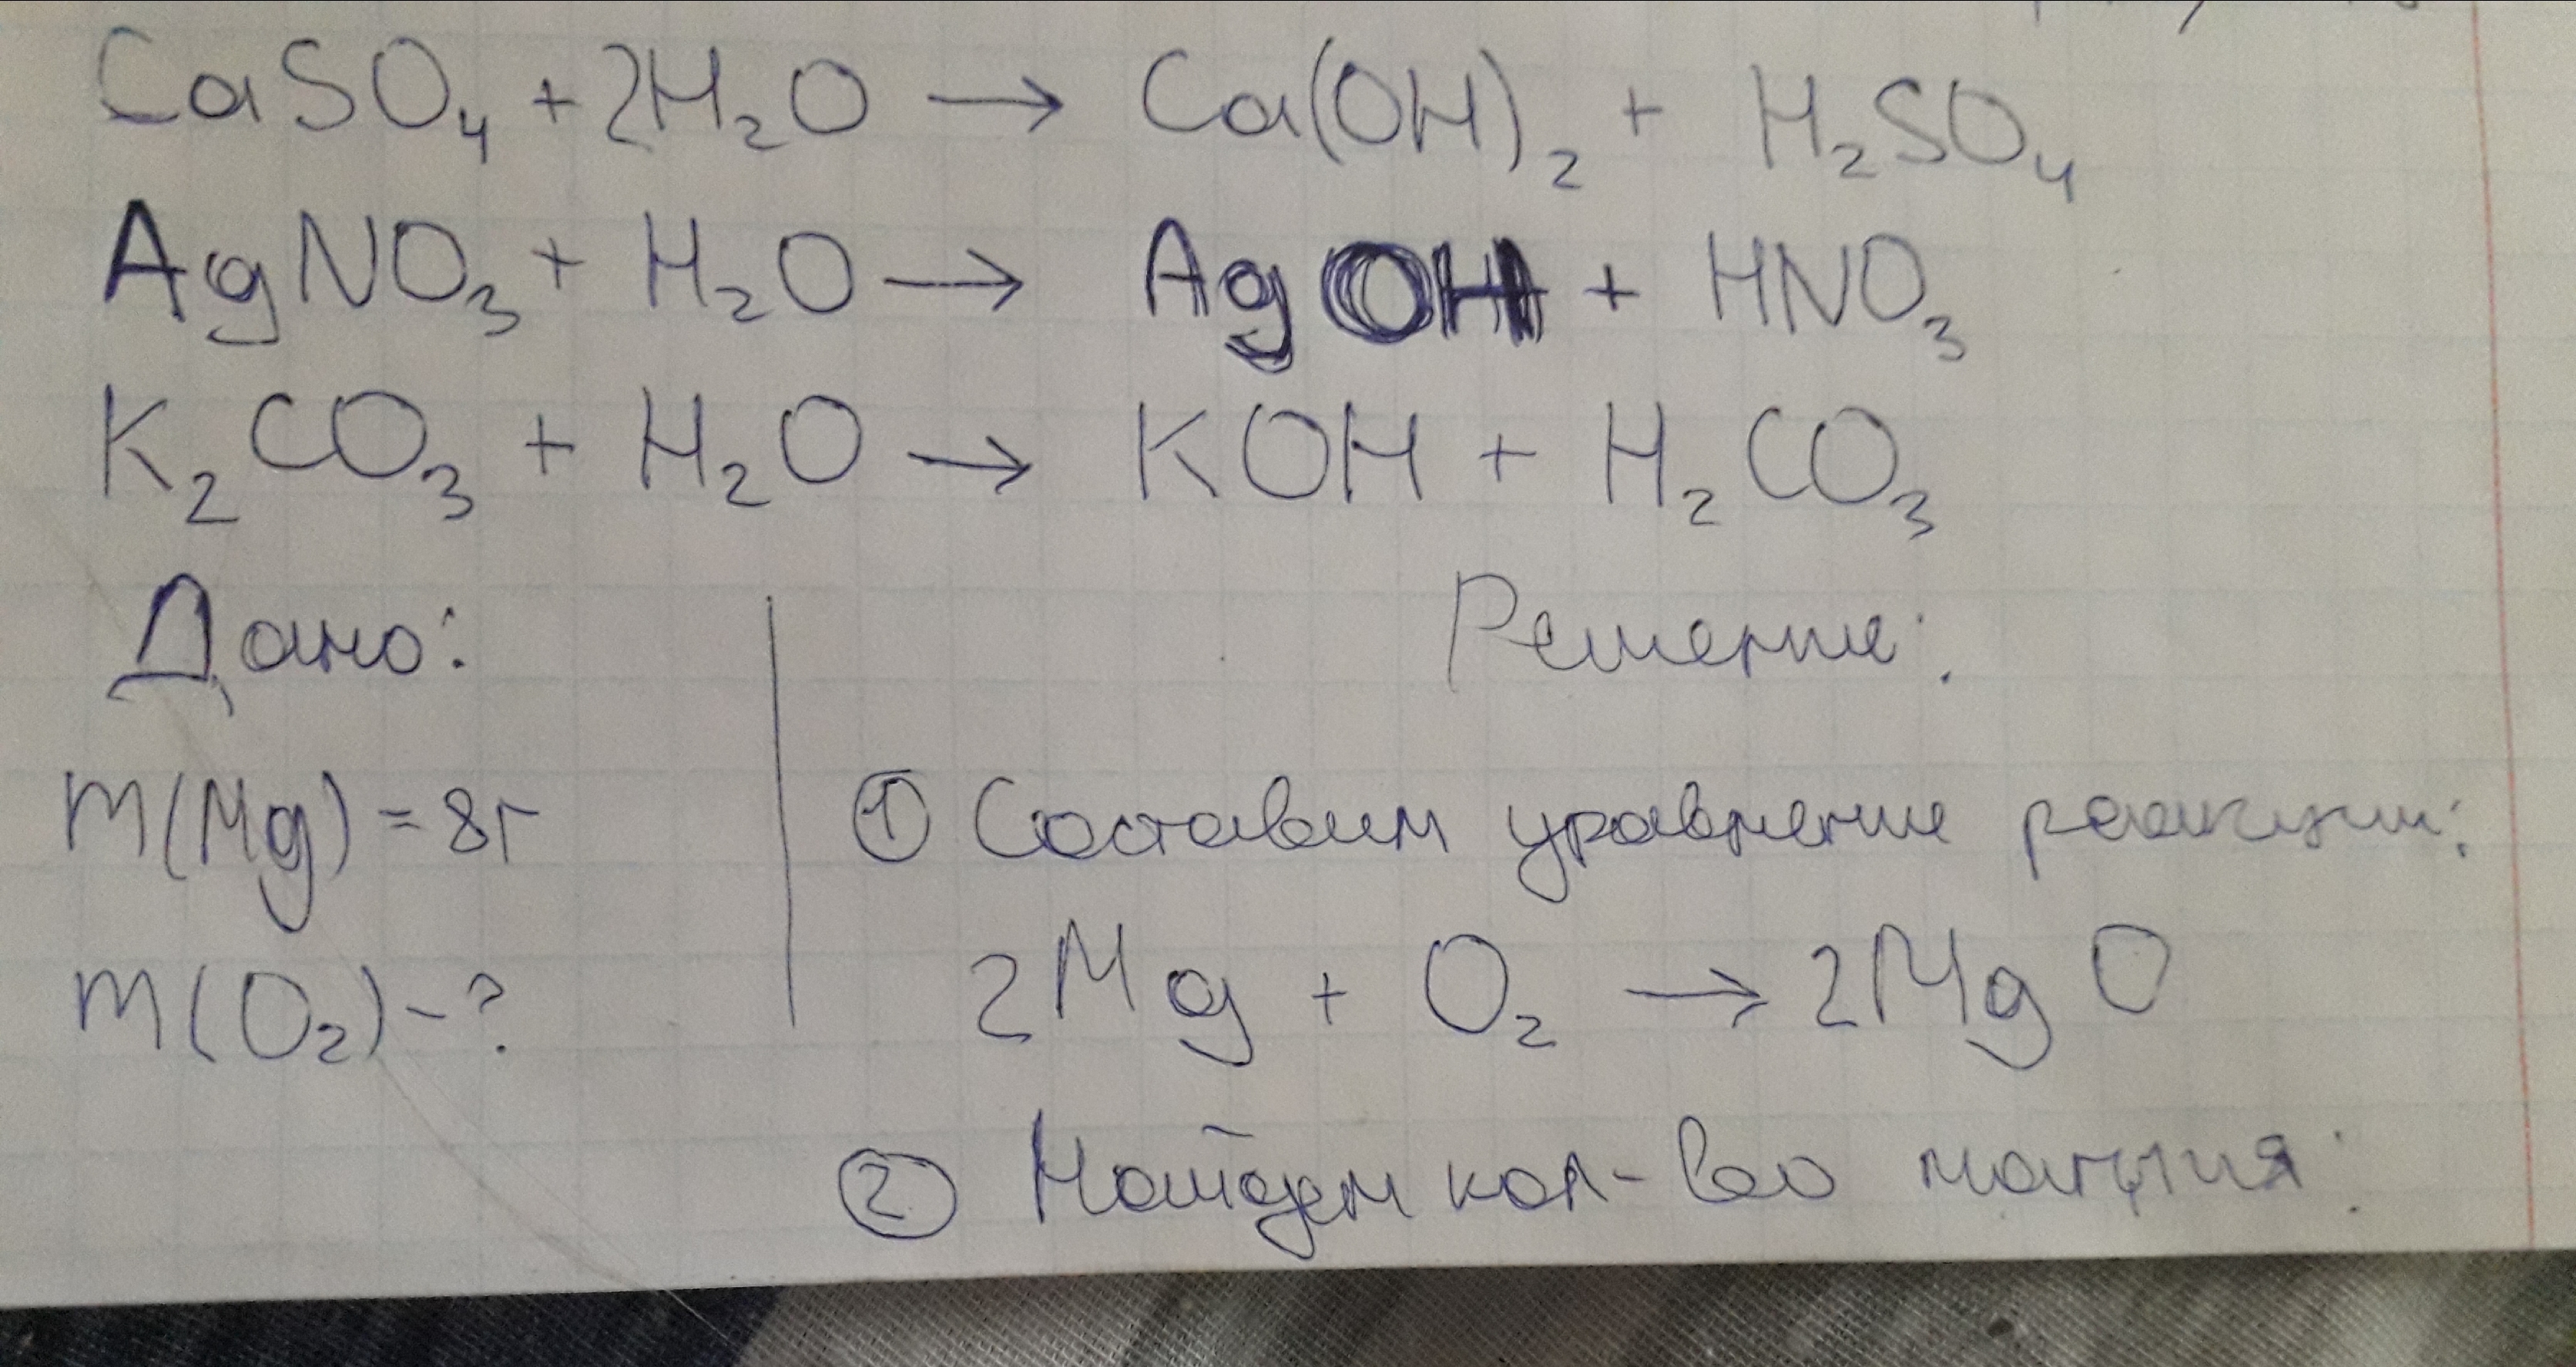 CaSO₄ + 2H₂O → Ca(OH)₂ + H₂SO₄
AgNO₃ + H₂O → AgOH + HNO₃
K₂CO₃ + H₂O → KOH + H₂CO₃
Дано:
m(Mg) = 8г
m(O₂) - ?
Решение:
① Составим уравнение реакции:
2Mg + O₂ → 2MgO
② Найдем кол-во магния: